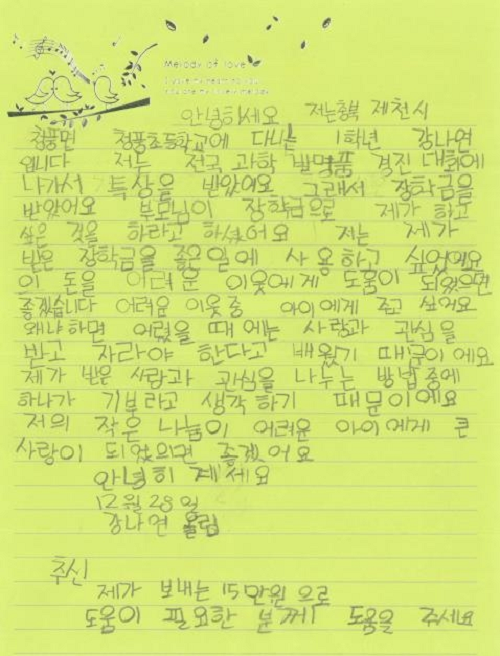 Melody of love
안녕하세요 저는 충북 제천시
청풍면 청풍초등학교에 다니는 1학년 강나연
입니다 저는 전국 과학 발명품 경진 대회에
나가서 특상을 받았어요 그래서 장학금을
받았어요 부모님이 장학금으로 제가 하고
싶은 것을 하라고 하셨어요 저는 제가
받은 장학금을 좋은 일에 사용하고 싶었어요
이 돈을 어려운 이웃에게 도움이 되었으면
좋겠습니다 어려운 이웃 중 아이에게 주고 싶어요
왜냐하면 어렸을 때에는 사랑과 관심을
받고 자라야 한다고 배웠기 때문이에요
제가 받은 사랑과 관심을 나누는 방법 중에
하나가 기부라고 생각하기 때문이에요
저의 작은 나눔이 어려운 아이에게 큰
사랑이 되었으면 좋겠어요
안녕히 계세요
12월 28일
강나연 올림
추신
제가 보내는 15만원으로
도움이 필요한 분께 도움을 주세요